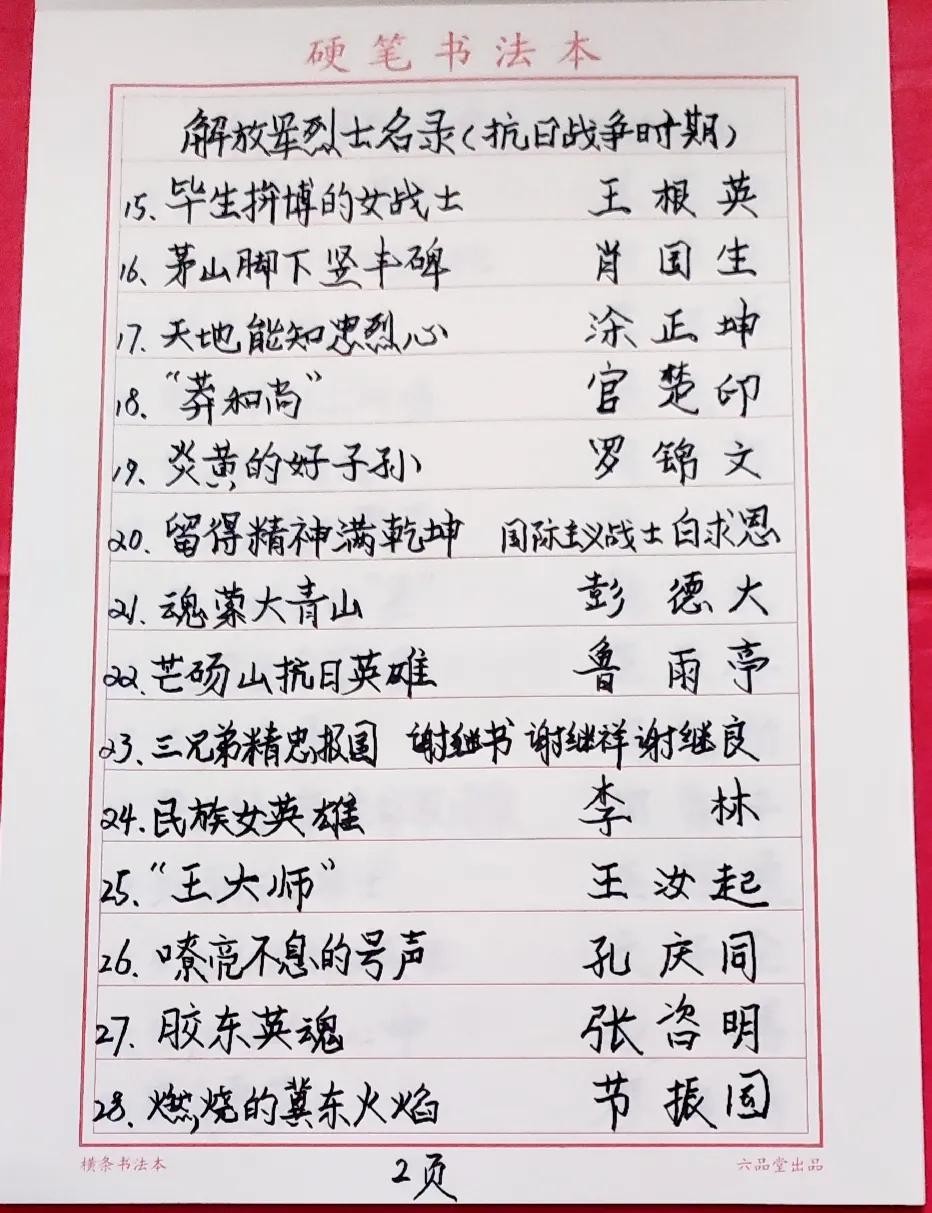 硬笔书法本
解放军烈士名录(抗日战争时期)
15、毕生拚搏的女战士 王根英
16、茅山脚下竖丰碑 肖国生
17、天地能知忠烈心 涂正坤
18、"莽和尚" 官楚印
19、炎黄的好子孙 罗锦文
20、留得精神满乾坤 国际主义战士白求恩
21、魂萦大青山 彭德大
22、芒砀山抗日英雄 鲁雨亭
23、三兄弟精忠报国 谢继书 谢继祥 谢继良
24、民族女英雄 李林
25、"王大师" 王汝起
26、嘹亮不息的号声 孔庆同
27、胶东英魂 张咨明
28、燃烧的冀东火焰 节振国
横条书法本 2页 六品堂出品